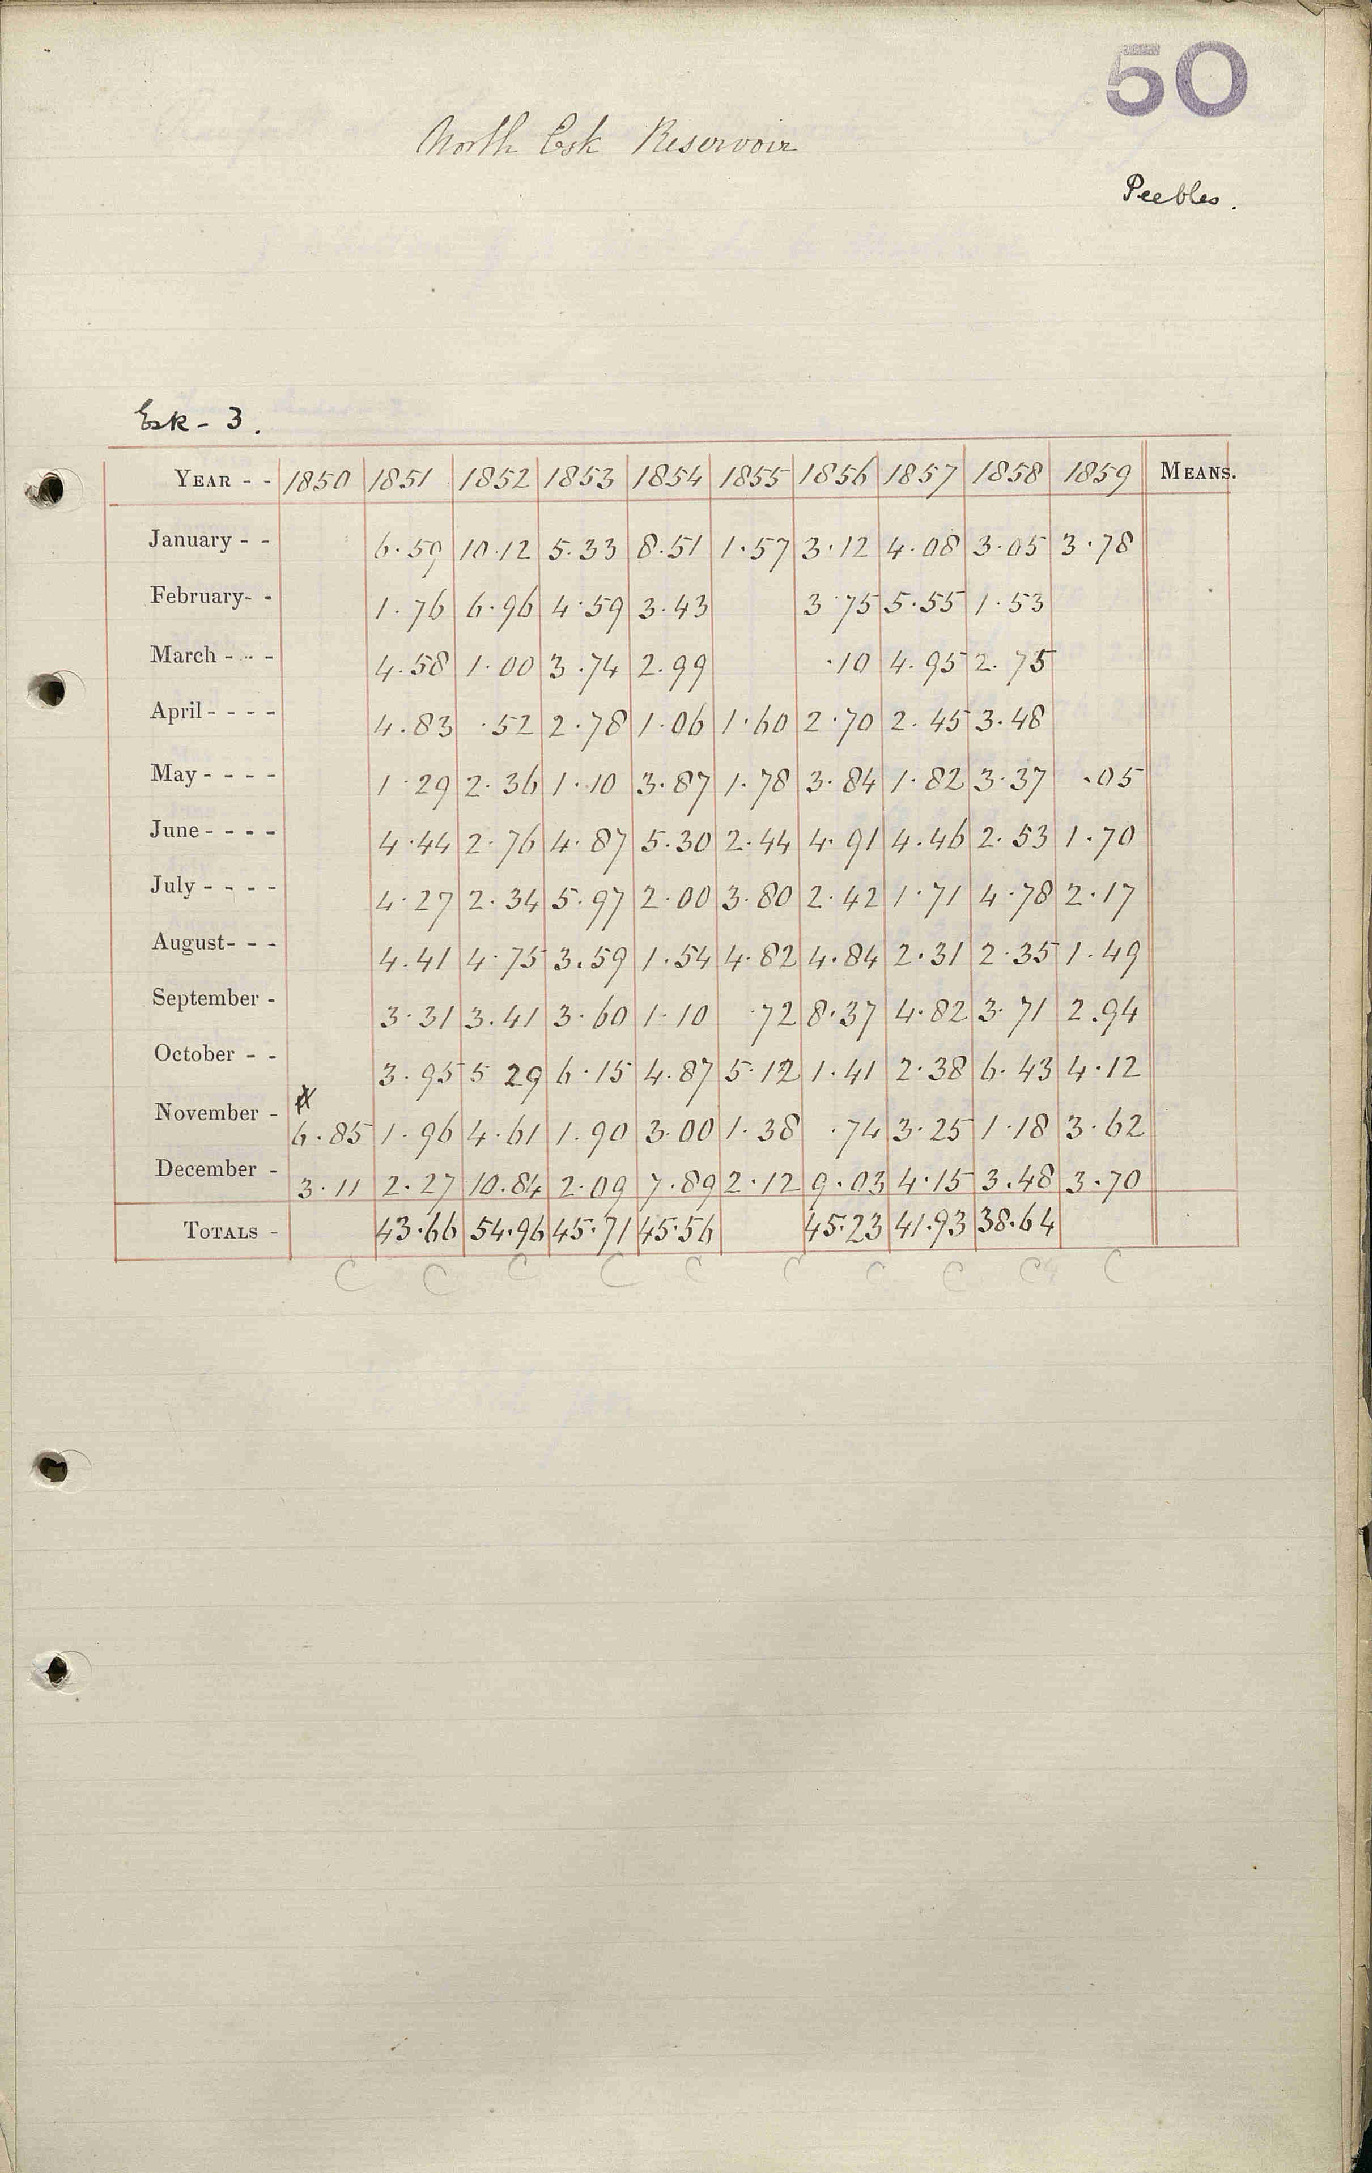 50
North Esk Reservoir
Peebles.
Esk - 3.
YEAR - - 1850 1851 1852 1853 1854 1855 1856 1857 1858 1859 MEANS.
January - - 6.59 10.12 5.33 8.51 1.57 3.12 4.08 3.05 3.78
February- - 1.76 6.96 4.59 3.43 3.75 5.55 1.53
March - - - 4.58 1.00 3.74 2.99 .10 4.95 2.75
April - - - - 4.83 .52 2.78 1.06 1.60 2.70 2.45 3.48
May - - - - 1.29 2.36 1.10 3.87 1.78 3.84 1.82 3.37 .05
June - - - - 4.44 2.76 4.87 5.30 2.44 4.91 4.46 2.53 1.70
July - - - - 4.27 2.34 5.97 2.00 3.80 2.42 1.71 4.78 2.17
August- - - 4.41 4.75 3.59 1.54 4.82 4.84 2.31 2.35 1.49
September - 3.31 3.41 3.60 1.10 .72 8.37 4.82 3.71 2.94
October - - 3.95 5 29 6.15 4.87 5.12 1.41 2.38 6.43 4.12
November - 6.85 1.96 4.61 1.90 3.00 1.38 .74 3.25 1.18 3.62
December - 3.11 2.27 10.84 2.09 7.89 2.12 9.03 4.15 3.48 3.70
TOTALS - 43.66 54.96 45.71 45.56 45.23 41.93 38.64
C C C C C C C C C C